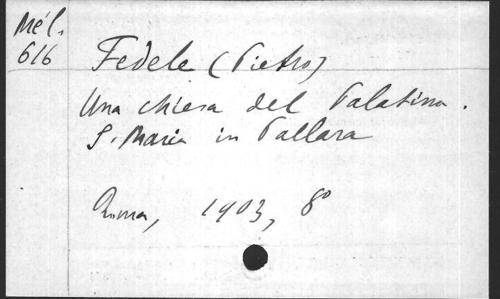 Mél.
616
Fedele (Pietro)
Una chiesa del Palatino.
S. Maria in Pallara
Roma, 1903, 8º